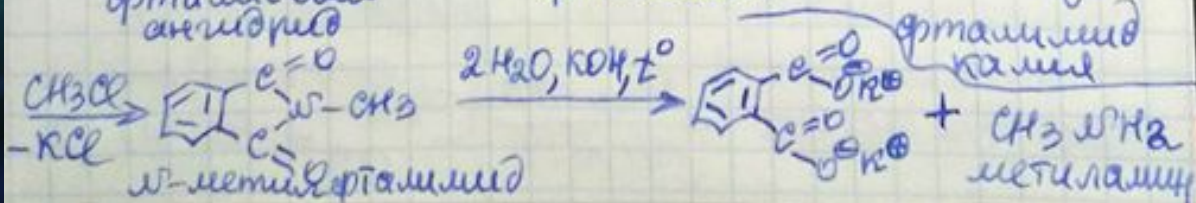 ангидрид
фталимид
калия
CH3Cl
-KCl
C=O
N-CH3
C=O
2H2O, KOH, t°
C=O
O⊖K⊕
C=O
O⊖K⊕
+ CH3NH2
N-метилфталимид
метиламин